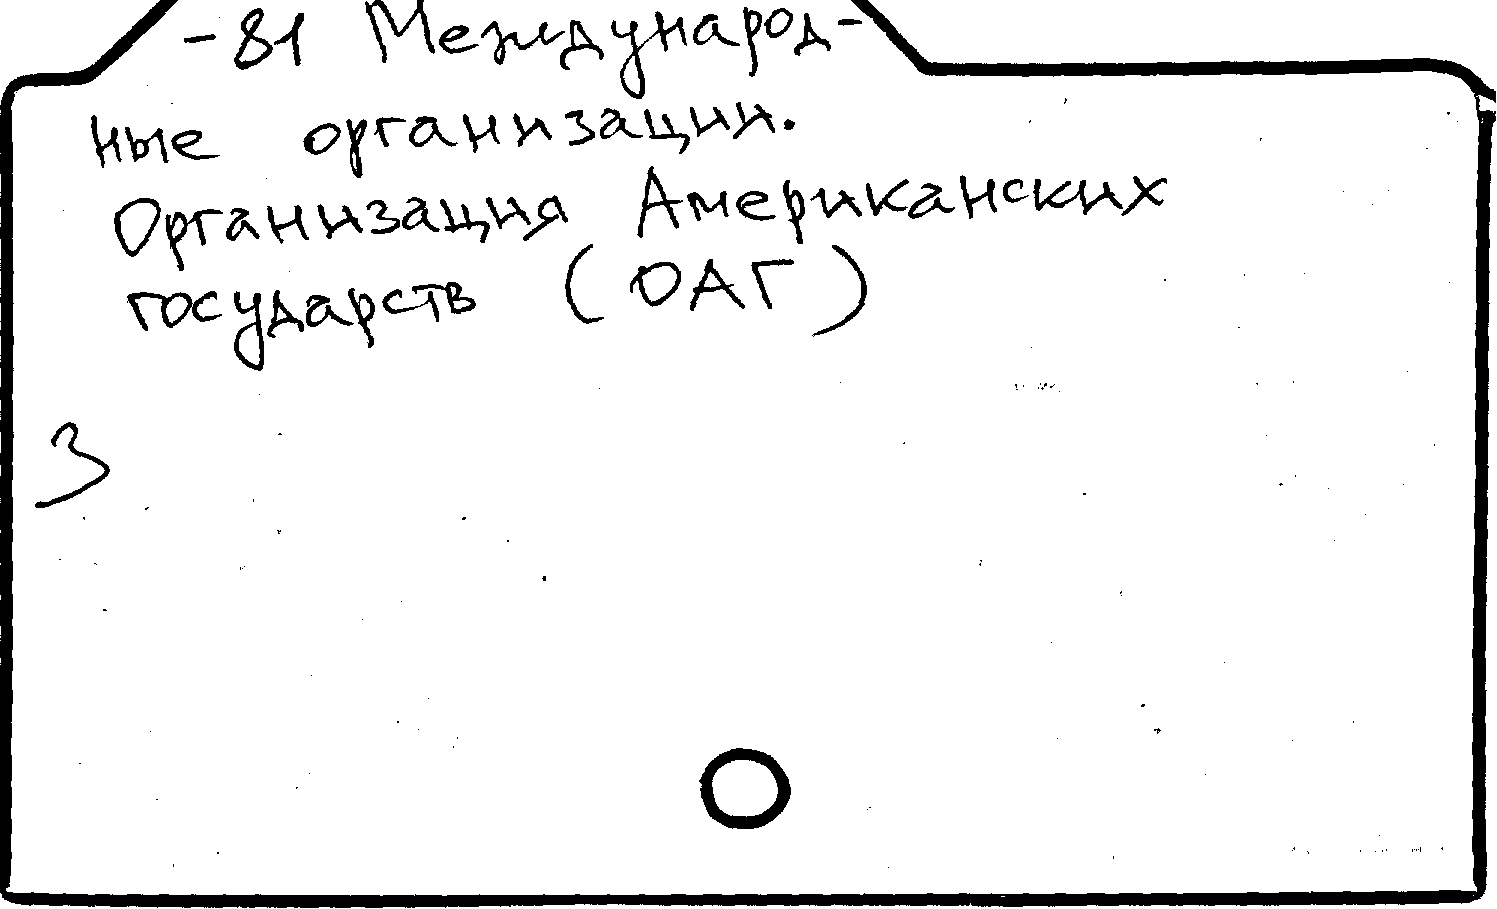 -81 Международ-
ные организации.
Организация Американских
государств (ОАГ)
3